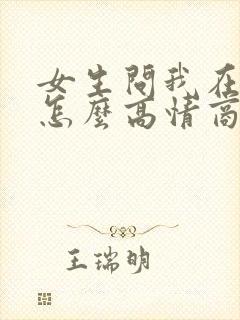 女生問我在
怎麼高情商
王瑞明